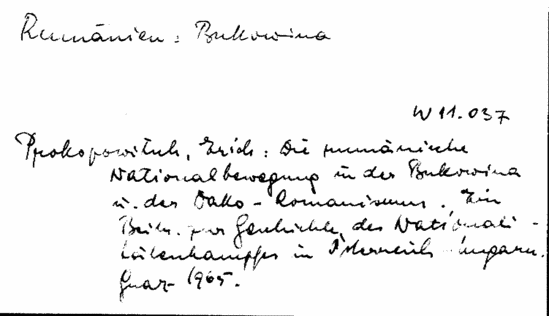 Rumänien: Bukowina
W 11.037
Prokopowitsch, Erich: Die rumänische
Nationalbewegung in der Bukowina
u. der Dako-Romanismus. Ein
Beitr. zur Geschichte des Nationali-
tätenkampfes in Österreich-Ungarn.
Graz 1965.